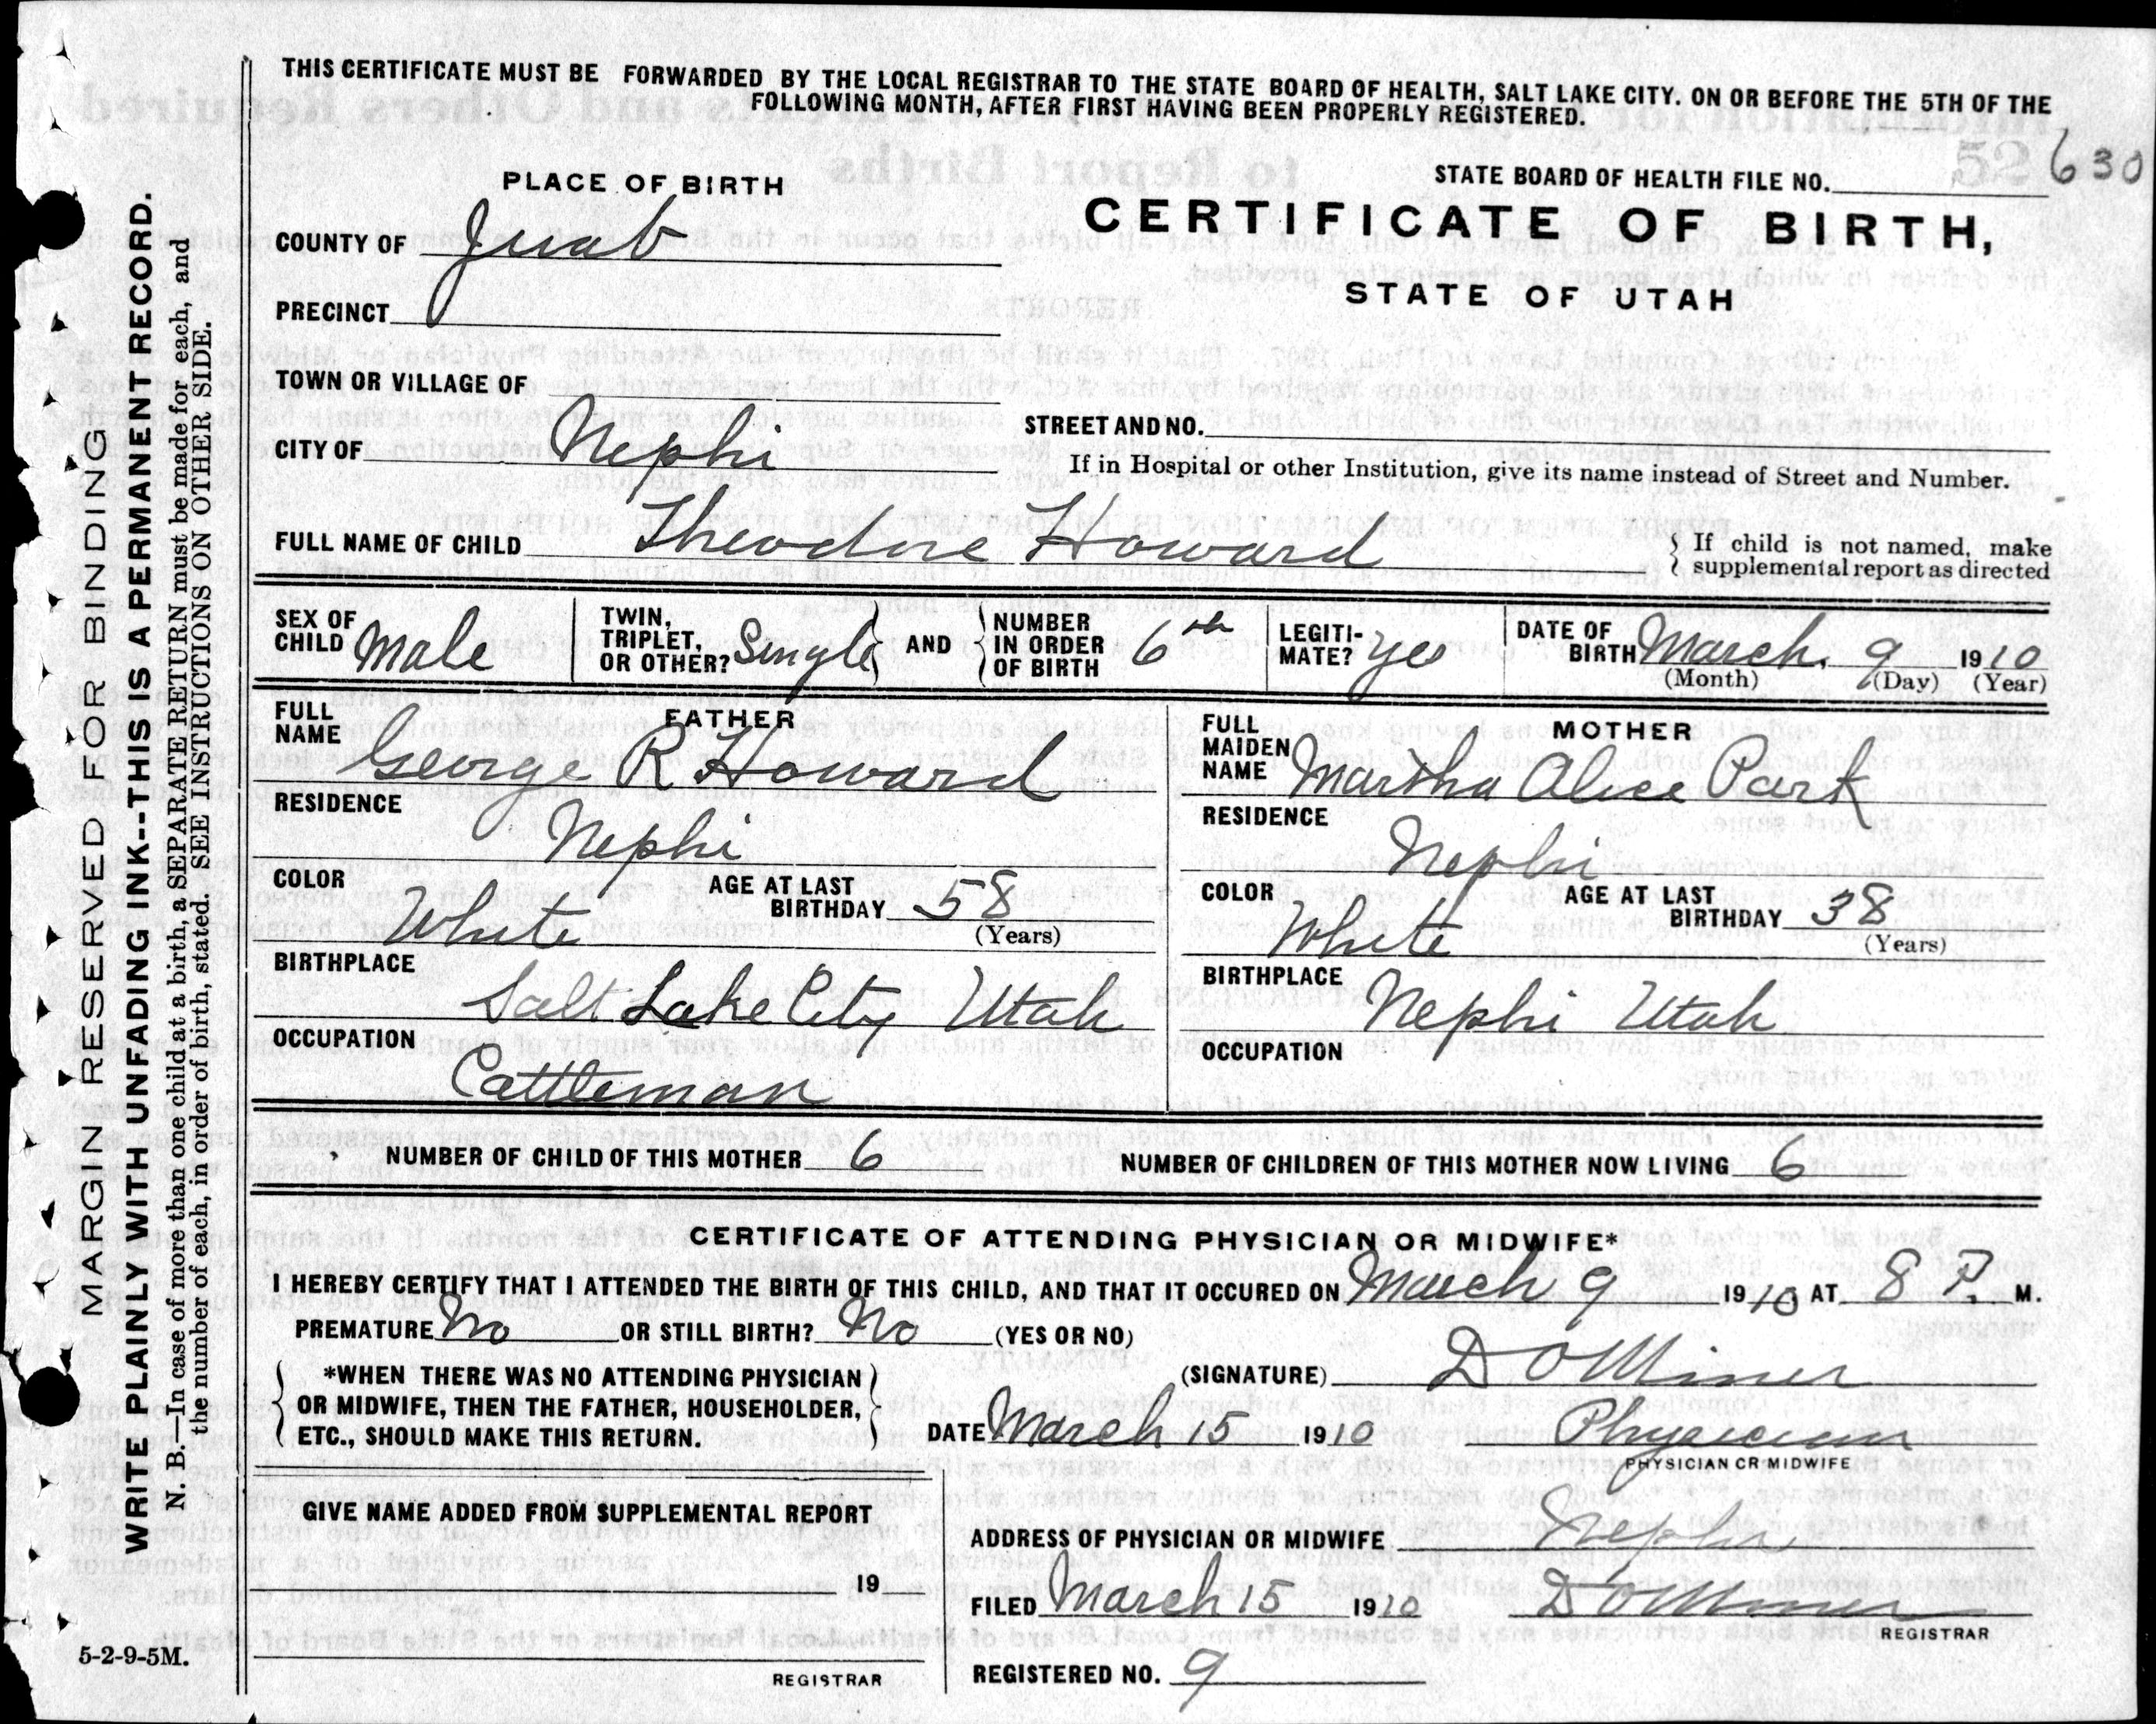 THIS CERTIFICATE MUST BE FORWARDED BY THE LOCAL REGISTRAR TO THE STATE BOARD OF HEALTH, SALT LAKE CITY. ON OR BEFORE THE 5TH OF THE
FOLLOWING MONTH, AFTER FIRST HAVING BEEN PROPERLY REGISTERED.
52 630
PLACE OF BIRTH
STATE BOARD OF HEALTH FILE NO.
COUNTY OF Juab
CERTIFICATE OF BIRTH,
STATE OF UTAH
PRECINCT
TOWN OR VILLAGE OF
CITY OF Nephi
STREET AND NO.
If in Hospital or other Institution, give its name instead of Street and Number.
FULL NAME OF CHILD Theodore Howard
If child is not named, make
supplemental report as directed
SEX OF
CHILD Male
TWIN,
TRIPLET,
OR OTHER? Single
AND
NUMBER
IN ORDER
OF BIRTH 6th
LEGITI-
MATE? Yes
DATE OF
BIRTH March 9 1910
(Month) (Day) (Year)
FATHER
FULL
NAME George R Howard
RESIDENCE
Nephi
COLOR White
AGE AT LAST
BIRTHDAY 58
(Years)
BIRTHPLACE
Salt Lake City Utah
OCCUPATION
Cattleman
MOTHER
FULL
MAIDEN
NAME Martha Alice Park
RESIDENCE
Nephi
COLOR White
AGE AT LAST
BIRTHDAY 38
(Years)
BIRTHPLACE
Nephi Utah
OCCUPATION
NUMBER OF CHILD OF THIS MOTHER 6
NUMBER OF CHILDREN OF THIS MOTHER NOW LIVING 6
CERTIFICATE OF ATTENDING PHYSICIAN OR MIDWIFE*
I HEREBY CERTIFY THAT I ATTENDED THE BIRTH OF THIS CHILD, AND THAT IT OCCURED ON March 9 1910 AT 8 P. M.
PREMATURE No OR STILL BIRTH? No (YES OR NO)
*WHEN THERE WAS NO ATTENDING PHYSICIAN
OR MIDWIFE, THEN THE FATHER, HOUSEHOLDER,
ETC., SHOULD MAKE THIS RETURN.
(SIGNATURE) D O Miner
DATE March 15 1910 Physician
PHYSICIAN OR MIDWIFE
GIVE NAME ADDED FROM SUPPLEMENTAL REPORT
19
REGISTRAR
ADDRESS OF PHYSICIAN OR MIDWIFE Nephi
FILED March 15 1910 D O Miner
REGISTRAR
REGISTERED NO. 9
MARGIN RESERVED FOR BINDING
WRITE PLAINLY WITH UNFADING INK--THIS IS A PERMANENT RECORD.
N. B.—In case of more than one child at a birth, a SEPARATE RETURN must be made for each, and
the number of each, in order of birth, stated. SEE INSTRUCTIONS ON OTHER SIDE.
5-2-9-5M.